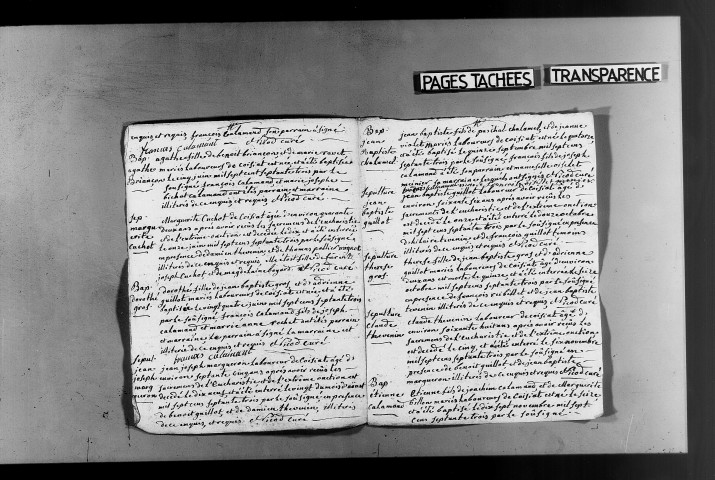 PAGES TACHEES
TRANSPARENCE
enquis et requis, françois Calamand son parrain a signé
francois calamand
curé
Bap. agathe fille de benoit briançon et de marie
agathe mariés laboureurs de Coisiat est née et a été baptisée
Briançon le cinq juin mil sept cent septante trois par le
soussigné françois calamand et marie josephe
bichet calamand ont été parrain et marraine
illitérée de ce enquis et requis
curé
sep. Marguerite Cuchet de Coisiat agée d'environ quarante
margue deux ans apres avoir reçu les sacremens de l'eucharistie
rite et de l'extrême onction est decedée le dix et a été enterrée
Cuchet le onze juin mil sept cens septante trois par le soussigné
en presence de damien thevenin, et de thomas
illitérés de ce enquis et requis elle était fille de
joseph Cuchet et de magdelaine
curé
Bap. dorothée fille de jean baptiste gros et d'adrienne
dorothée guillot mariés laboureurs de Coisiat est née et a été
gros baptisée le vingt quatre juin mil sept cent septante trois
par le soussigné, françois calamand fils de joseph
calamand et marie anne rochet ont été parrain
et marraine le parrain a signé la marraine est
illitérée de ce enquis et requis
curé
francois calamand
sepul. jean joseph margueron laboureur de Coisiat agé d'
jean environ septante cinq ans apres avoir reçu les
joseph sacremens de l'Eucharistie et de l'extrême onction est
marg decedé le dix neuf et a été enterré le vingt du mois d'aoust
ueron mil sept cens septante trois par le soussigné en presence
de benoit guillot, et de damien thevenin, illitérés
de ce enquis et requis
curé
Bap. jean baptiste fils de chalamel, et de jeanne
jean mariés laboureurs de Coisiat est né le
baptiste et a été baptisé le quinze septembre mil sept cens
chalamel septante trois par le soussigné, françois fils de joseph
calamand a été son parrain et
sepulture jean baptiste guillot laboureur de Coisiat agé d'
jean environ soixante six ans apres avoir reçu les
baptiste sacremens de l'eucharistie et de l'extreme onction
guillot est decedé le onze et a été enterré le douze octobre
mil sept cens septante trois par le soussigné en presence
d'hilaire thevenin et de françois guillot temoins
illitérés de ce enquis et requis
curé
sepulture therese fille de jean baptiste gros et d'adrienne
therese guillot mariés laboureurs de Coisiat agée d'environ
gros deux ans est morte le quinze et a été enterrée le seize
octobre mil sept cens septante trois par le soussigné
en presence de françois et de jean baptiste
thevenin illitérés de ce enquis et requis
curé
sepulture claude thevenin laboureur de Coisiat agé d'
claude environ soixante huit ans apres avoir reçu les
thevenin sacremens de l'Eucharistie et de l'extrême onction
est decedé le cinq et a été enterré le six novembre
mil sept cens septante trois par le soussigné en
presence de benoit guillot, et de jean baptiste
margueron illitérés de ce enquis et requis
curé
Bap. Etienne fils de joachim calamand, et de Marguerite
étienne mariés laboureurs de Coisiat est né le seize
calamand et a été baptisé le dix sept novembre mil sept
cens septante trois par le soussigné